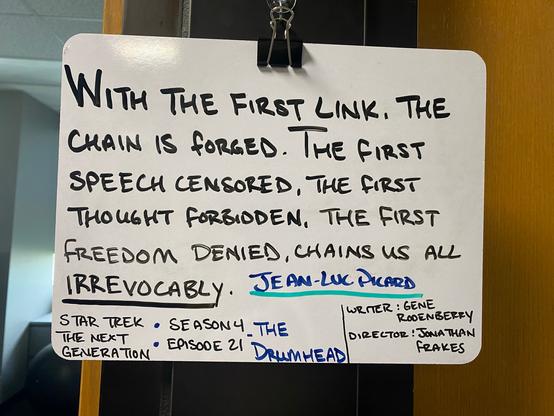 WITH THE FIRST LINK, THE
CHAIN IS FORGED. THE FIRST
SPEECH CENSORED, THE FIRST
THOUGHT FORBIDDEN, THE FIRST
FREEDOM DENIED, CHAINS US ALL
IRREVOCABLY. JEAN-LUC PICARD
STAR TREK
THE NEXT
GENERATION
• SEASON 4
• EPISODE 21
- THE
DRUMHEAD
WRITER: GENE
RODENBERRY
DIRECTOR: JONATHAN
FRAKES